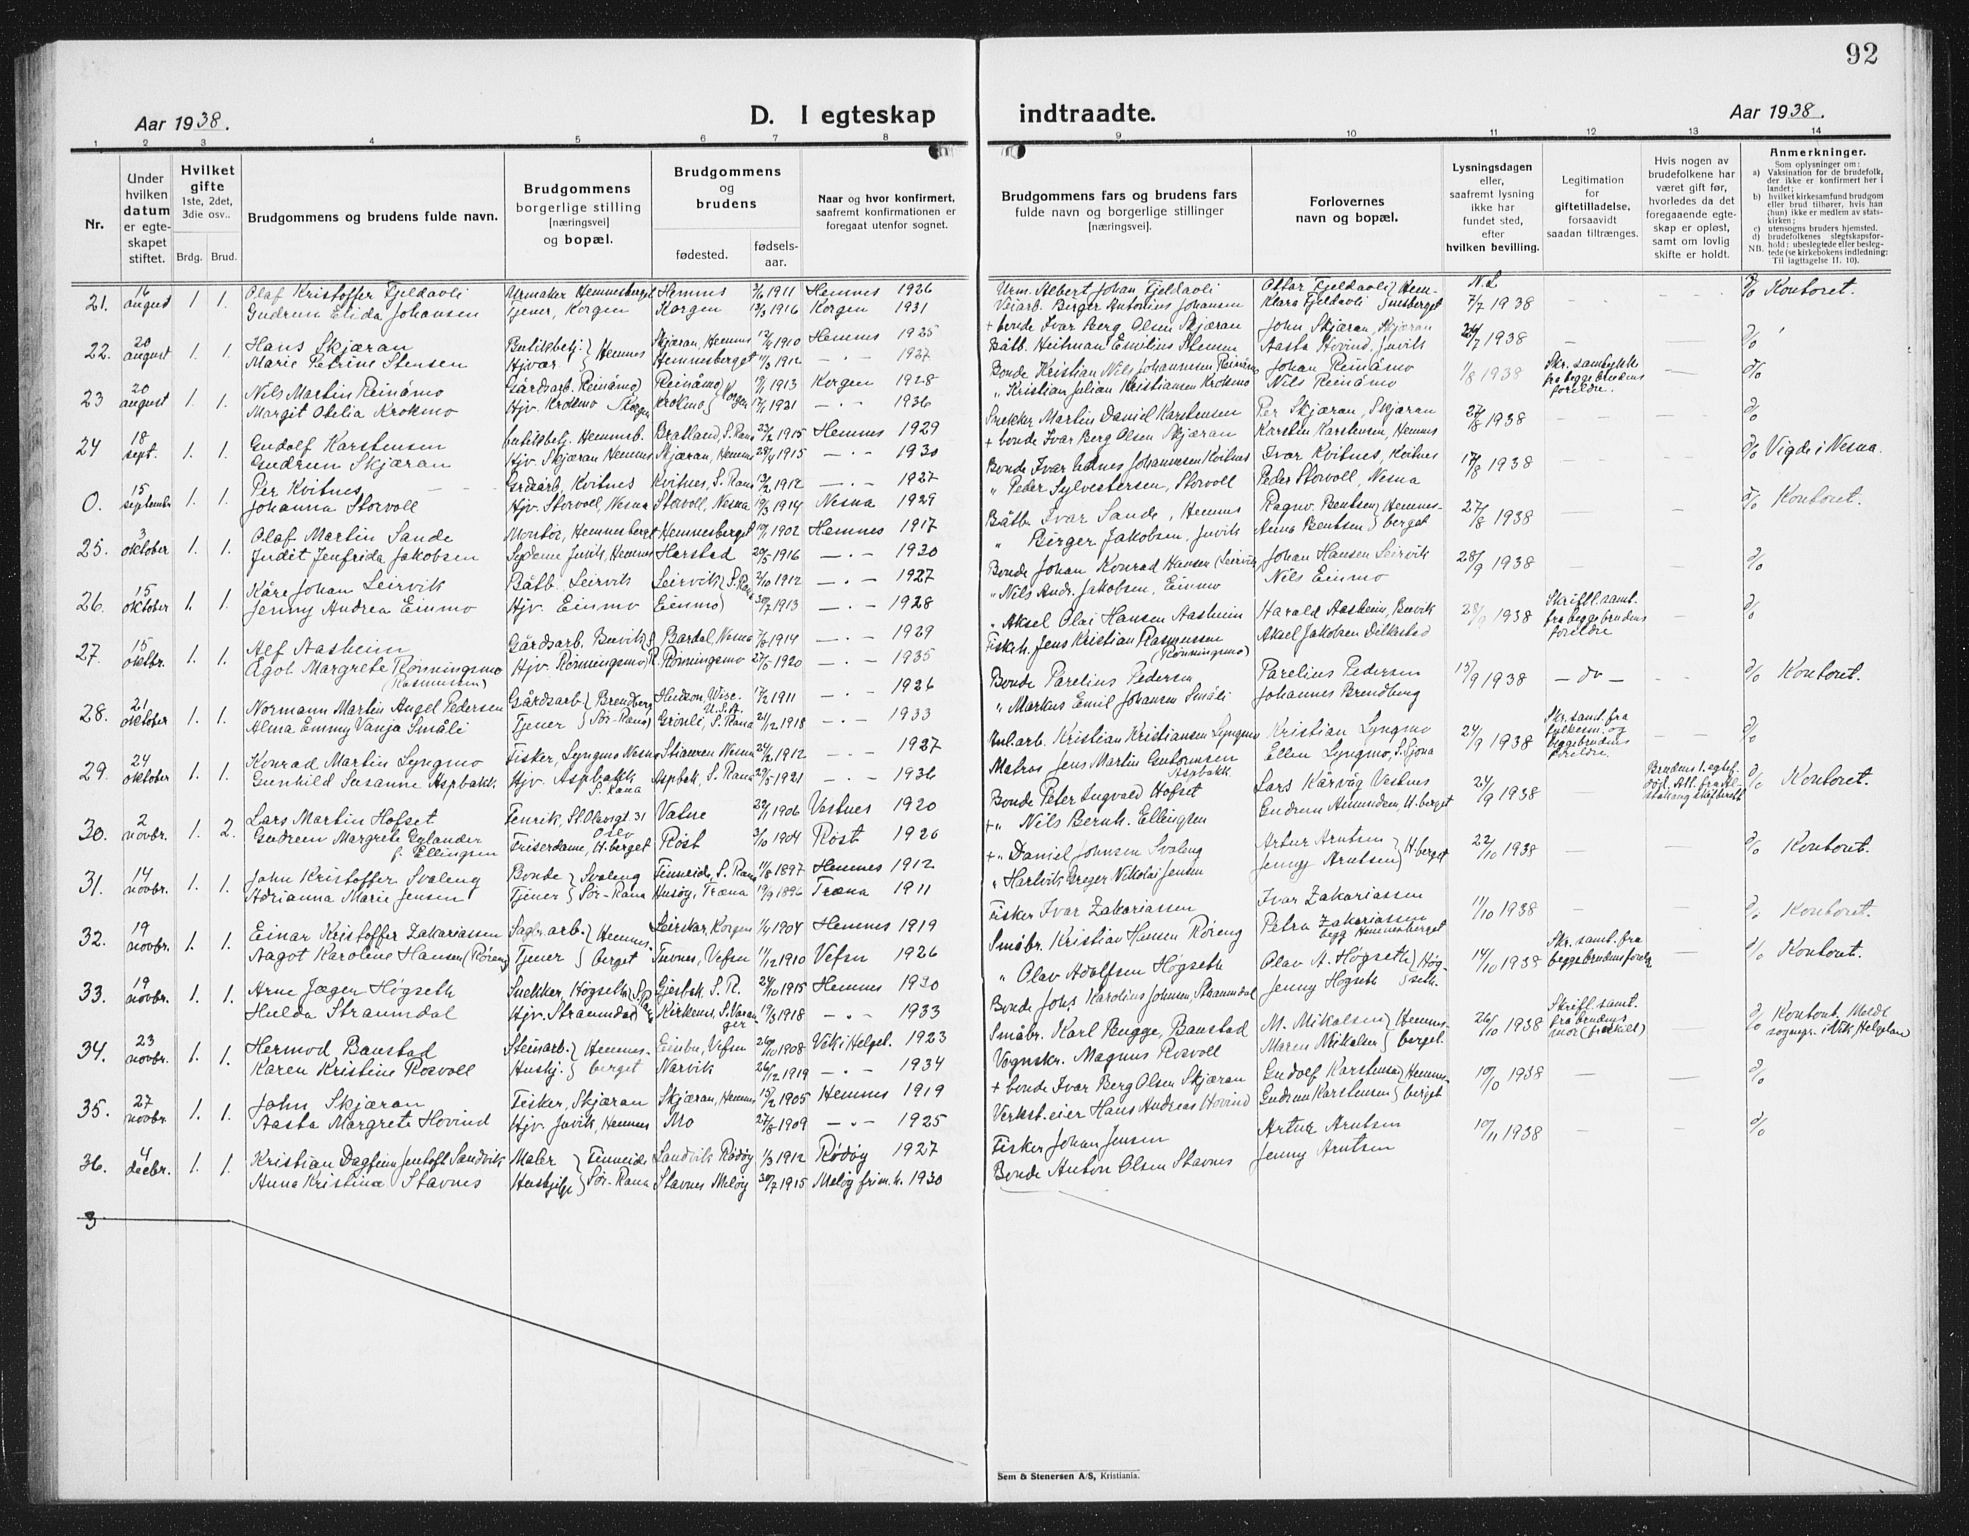 92
Aar 1938.
D. I egteskap
indtraadte.
Aar 1938.
1 2 3 4 5 6 7 8 9 10 11 12 13 14
Nr.
Under hvilken datum er egteskapet stiftet.
Hvilket gifte 1ste, 2det, 3die osv..
Brdg. Brud.
Brudgommens og brudens fulde navn.
Brudgommens borgerlige stilling [næringsvei] og bopæl.
Brudgommens og brudens
fødested. fødsels-aar.
Naar og hvor konfirmert, saafremt konfirmationen er foregaat utenfor sognet.
Brudgommens fars og brudens fars fulde navn og borgerlige stillinger [næringsvei].
Forlovernes navn og bopæl.
Lysningsdagen eller, saafremt lysning ikke har fundet sted, efter hvilken bevilling.
Legitimation for giftetilladelse, forsaavidt saadan tiltrænges.
Hvis nogen av brudefolkene har været gift før, hvorledes da det foregaaende egteskap er opløst, samt om lovlig skifte er holdt.
Anmerkninger.
Som oplysninger om:
a) Vaksination for de brudefolk, der ikke er konfirmert her i landet;
b) hvilket kirkesamfund brudgom eller brud tilhører, hvis han (hun) ikke er medlem av statskirken;
c) utensogns bruders hjemsted.
d) brudefolkenes slegtskapsforhold: ubeslegtede eller beslegtede (se kirkebokens indledning: NB. Til iagttagelse II. 10).
21. 16 august 1. 1. Olaf Kristoffer Fjeldavli Urmaker Hemnesberget Hemnes 1911 Hemnes 1926
Gudrun Elida Johansen Tjener, Korgen Korgen 1916 Korgen 1931
Urm. Albert Johan Fjeldavli Ottar Fjeldavli Hem- N.L
Veiarb. Birger Antonius Johansen Klara Fjeldavli nesberget 7/7 1938 Kontoret.
22. 20 august 1. 1. Hans Skjæran Butikkbetj. Hemnes Skjæran, Hemnes 1910 Hemnes 1925
Marie Petrine Stensen Hjvær Hemnesberget 1912 — " — 1927
+ bonde Ivar Berg Olsen Skjæran John Skjæran, Skjæran
Båtb. Heilman Emilius Stensen Aasta Hovind, Juvik 1938
23 20 august 1. 1. Nils Martin Reinåmo Gårdsarb. Reinåmo Reinåmo Korgen 1913 Korgen 1928
Margit Otelia Krokmo Hjv. Krokmo Korgen Krokmo 1921 — " — 1936
Bonde Kristian Nils Johannesen Reinåmo Johan Reinåmo 1/8 1938 Skr. samtykke fra begge brudens foreldre.
" Kristian Julian Kristiansen Krokmo Nils Reinåmo
24 18 sept. 1. 1. Gudolf Karstensen butikkbetj. Hemnesb. Bratland, S. Rana 1915 Hemnes 1929
Gudrun Skjæran Hjv. Skjæran Hemnes Skjæran, Hemnes 1915 — " — 1930
Snekker Martin Daniel Karstensen Per Skjæran, Skjæran
+ bonde Ivar Berg Olsen Skjæran Karstin Karstensen, Hemnes 1938
0. 15 september 1. 1. Per Kvitnes Grdsarb. Kvitnes Kvitnes, S. Rana 1912 — " — 1927
Johanna Storvoll Hjv. Storvoll, Nesna Storvoll, Nesna 1914 Nesna 1929
Bonde Ivar Johannesen Kvitnes Ivar Kvitnes, Kvitnes 1938 Vigde i Nesna.
" Peder Sylvestersen, Storvoll Peder Storvoll, Nesna
25. 3 oktober 1. 1. Olaf Martin Sande Montør, Hemnesberget Hemnesberget 1902 Hemnes 1917
Judit Jenfrida Jakobsen Sydame Juvik, Hemnes Harstad 1916 — " — 1930
Båtb. Ivar Sande, Hemnes Ragnv. Bentsen Hemnes- 27/8 1938 Kontoret.
" Birger Jakobsen, Juvik Anna Bentsen berget
26. 15 oktober 1. 1. Kåre Johan Leirvik Båtb. Leirvik Leirvik S. Rana 1912 — " — 1927
Jenny Andrea Einmo Hjv. Einmo Einmo 1913 — " — 1928
Bonde Johan Konrad Hansen Leirvik Johan Hansen Leirvik 28/9 1938
" Nils Andr. Jakobsen, Einmo Nils Einmo
27. 15 oktbr. 1. 1. Alf Aasheim Gårdsarb. Bervik Bardal, Nesna 1914 — " — 1929
Egot Margrete Rønningsmo (Rasmussen) Hjv. Rønningsmo Rønningsmo 1920 — " — 1935
" Aksel Olai Hansen Aasheim Harald Aasheim, Bervik 28/9 1938 Skriftl. samt. fra begge brudens foreldre
Fiskeh. Jens Kristian Rasmussen (Rønningsmo) Aksel Jakobsen Dilkestad
28. 21 oktober 1. 1. Normann Martin Angel Pedersen Gårdsarb. Brendberg Hudson Wisc. U.S.A. 1911 — " — 1926
Alma Emmy Vanja Småli Tjener Sør-Rana Grønli, S. Rana 1918 — " — 1933
Bonde Parelius Pedersen Parelius Pedersen 15/9 1938 — do — Kontoret.
" Markus Emil Johansen Småli Johannes Brendberg
29. 24 oktober 1. 1. Konrad Martin Lyngmo Fisker, Lyngmo Nesna Skianren Nesna 1912 — " — 1927
Gunhild Susanne Aspbakk. Hjv. Aspbakk S. Rana Aspbak, S. Rana 1921 — " — 1936
Anl.arb. Kristian Kristiansen Lyngmo Kristian Lyngmo 24/9 1938 Skr. samt. fra fylkesm. og begge brudens foreldre.
Matros Jens Martin Guttormsen Aspbakk Ellen Lyngmo, S. Sjona
30. 2 novbr. 1. 2. Lars Martin Hofset Fenrik, St. Olavsgt 31 Oslo Vatne 1906 Vestnes 1920
Gudrun Margrete Gylander f. Ellingsen Friserdame, H.berget Røst 1904 Røst 1920
Bonde Peter Ingvald Hofset Lars Kårvåg Vestnes 24/9 1938 Kontoret.
+ " Nils Bernh. Ellingsen Gudrun Amundsen H.berget
31. 14 novbr. 1. 1. John Kristoffer Svaleng Bonde Svaleng Finneide, S. Rana 1897 Hemnes 1912
Adrianna Marie Jensen Tjener Sør-Rana Husøy, Træna 1896 Træna 1911
+ " Daniel Johnsen Svaleng Artur Arntsen H.berget 22/10 1938 Kontoret.
" Hartvik Greger Nikolai Jensen Jenny Arntsen
32. 19 novbr. 1. 1. Einar Kristoffer Zakariassen Sagbr.arb. Hemnes- Leirskar, Korgen 1904 Hemnes 1919
Aagot Karoline Hansen (Røreng) Tjener berget Tuvnes, Vefsn 1910 Vefsn 1926
Fisker Ivar Zakariassen Ivar Zakariassen 11/10 1938 Kontoret.
Småbr. Kristian Hansen Røreng Petra Zakariassen begg Hemnesberget
33. 19 novbr. 1. 1. Arne Jæger Høgseth Snekker, Høgseth Gjesbak, S. R. 1915 Hemnes 1930
Hulda Straumdal Hjv. Straumdal Kirkenes, S. Varanger 1918 — " — 1933
" Olav Adolfsen Høgseth Olav A. Høgseth Høg- 14/10 1938 Skr. samt. fra begge brudens foreldre Kontoret.
Bonde Johs. Karolius Johnsen, Straumdal Jenny Høgseth seth.
34. 23 novbr. 1. 1. Hermod Baustad Steinarb. Hemnes- Vefsn 1908 Vik i Helgel. 1923
Karen Kristine Rosvoll Hushj. berget Narvik 1919 — " — 1934
Småbr. Karl Bugge, Baustad M. Mikalsen Hemnes- 26/10 1938 Skriftl. samt. fra brudens mor (fraskilt) Kontoret. Meldt sognepr. i Vik, Helgeland
Vognskr. Magnus Rosvoll Maren Mikalsen berget.
35. 27 novbr. 1. 1. John Skjæran Fisker, Skjæran Skjæran, Hemnes 1905 Hemnes 1919
Aasta Margrete Hovind Hjv. Juvik, Hemnes Mo 1909 — " — 1925
+ bonde Ivar Berg Olsen Skjæran Gudolf Karstensen Hemnes- 1938
Verkst.eier Hans Andreas Hovind Gudrun Karstensen berget
36. 4 decbr. 1. 1. Kristian Dagfinn Jentoft Sandvik Maler Finneide Sandvik Rødøy 1912 Rødøy 1927
Anna Kristina Stavnes Hushjelp Sør-Rana Stavnes Meløy 1915 Meløy frim. k. 1930
Fisker Johan Jensen Artur Arntsen 10/11 1938
Bonde Anton Olsen Stavnes Jenny Arntsen
3
Sem & Stenersen A/S, Kristiania.